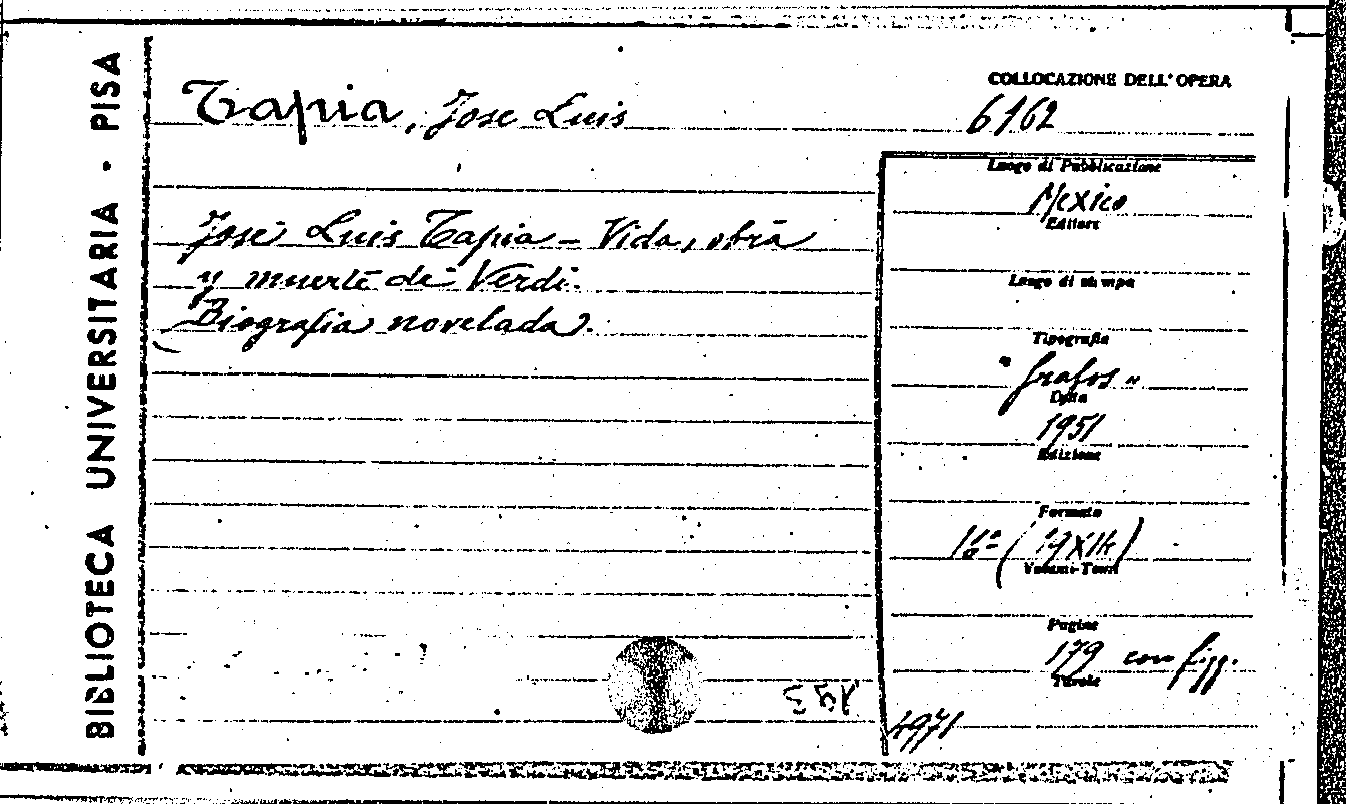 BIBLIOTECA UNIVERSITARIA - PISA
Tapia, Jose Luis
José Luis Tapia - Vida, obra
y muerte de Verdi.
Biografia novelada.
COLLOCAZIONE DELL'OPERA
6162
Luogo di Pubblicazione
Mexico
Editore
Luogo di stampa
Tipografia
"Grafos"
Data
1951
Edizione
Formato
Volumi-Tomi
Pagine
179 con figg.
Tavole
4971